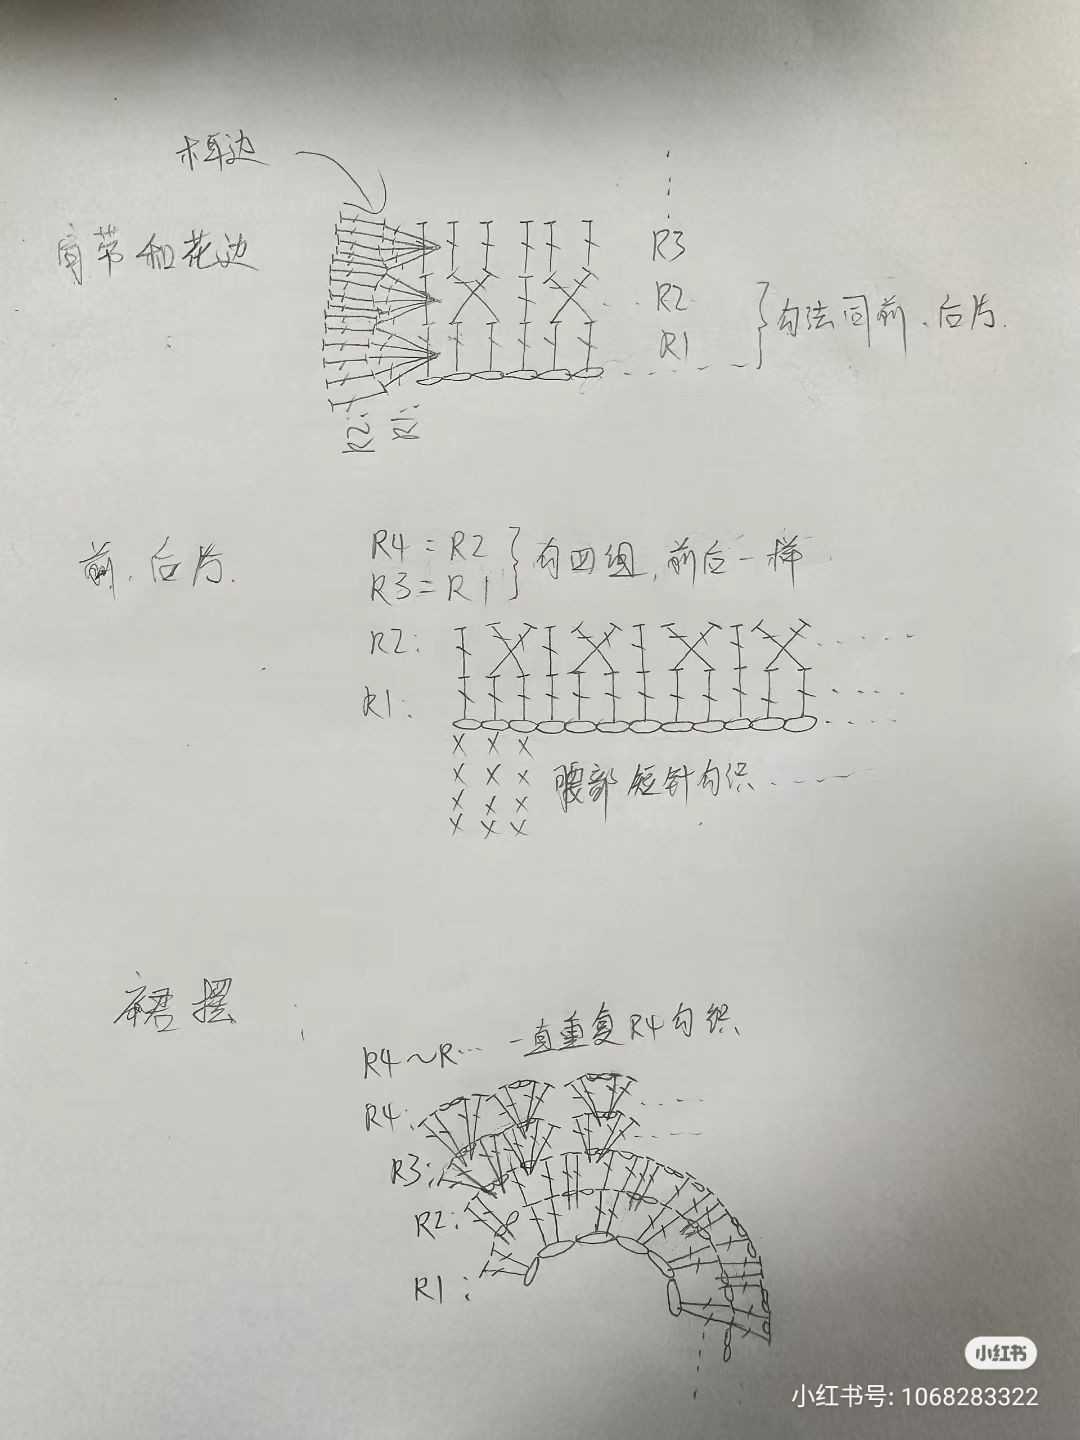 木耳边
肩带和花边
R3
R2
R1
勾法同前、后片.
R2:
R1:
前、后片.
R4 = R2
R3 = R1
勾四组,前后一样
R2:
R1:
腰部短针勾织
裙摆
R4~R… 一直重复R4勾织
R4:
R3:
R2:
R1:
小红书
小红书号: 1068283322